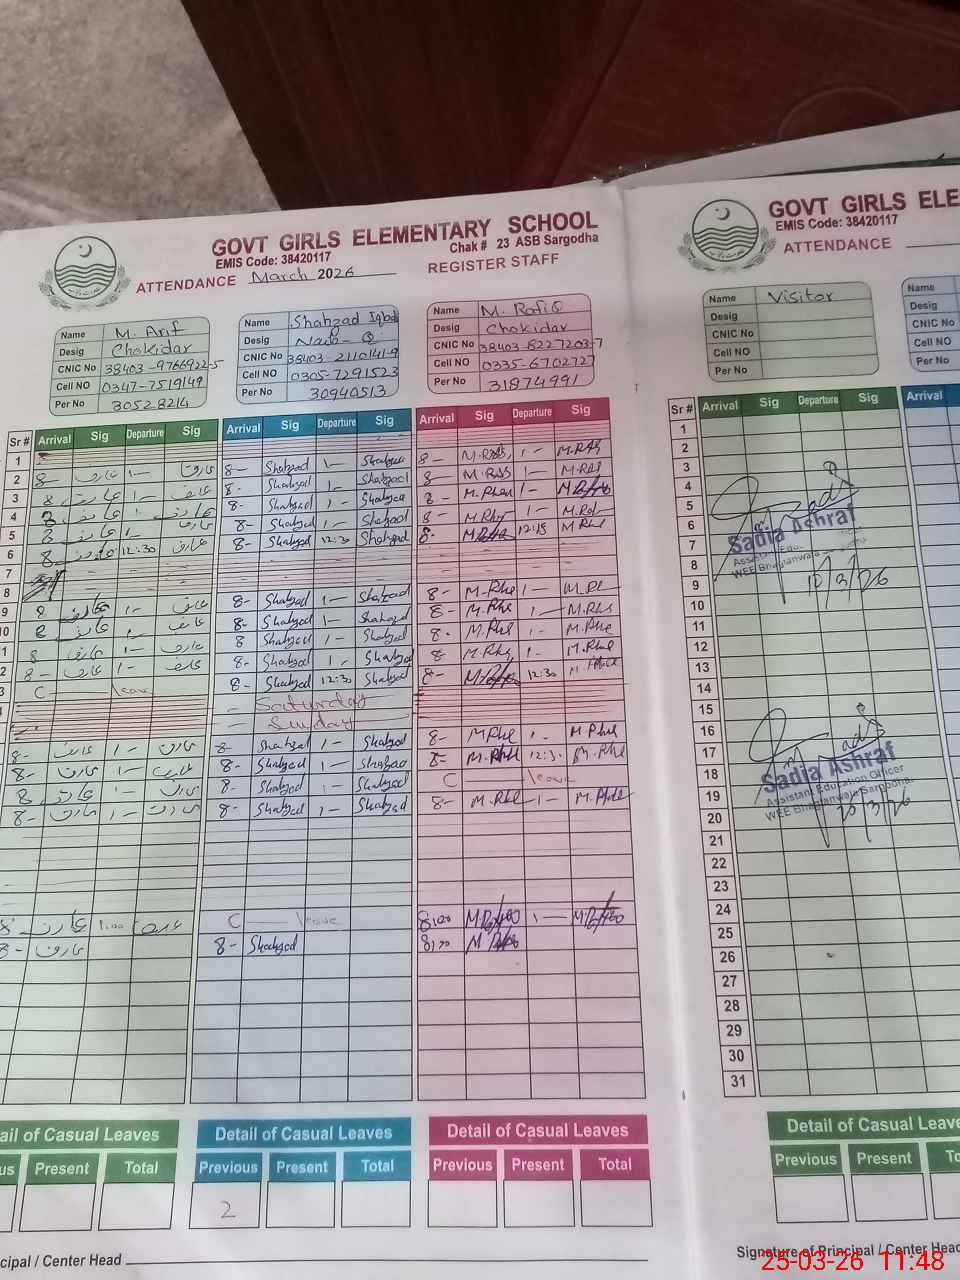 GOVT GIRLS ELEMENTARY SCHOOL
EMIS Code: 38420117
Chak # 23 ASB Sargodha
ATTENDANCE March 2026 REGISTER STAFF
Name M. Arif
Desig Chokidar
CNIC No 38403-9766922-5
Cell NO 0347-7519149
Per No 30528214
Name Shahzad Iqbal
Desig Naib-Q
CNIC No 38403-2110141-9
Cell NO 0305-7291523
Per No 30940513
Name M. Rafiq
Desig Chokidar
CNIC No 38403-8227203-7
Cell NO 0335-6702727
Per No 31874991
Sr # Arrival Sig Departure Sig Arrival Sig Departure Sig Arrival Sig Departure Sig
1
2 8- عارف 1- عارف 8- Shahzad 1- Shahzad 8- 1-
3 8 عارف 1- عارف 8- Shahzad 1- Shahzad 8- 1-
4 8 عارف 1- عارف 8- Shahzad 1- Shahzad 8- 1-
5 8 عارف 1- عارف 8- Shahzad 1- Shahzad 8- 1-
6 8- عارف 12:30 عارف 8- Shahzad 12:30 Shahzad 8- 12:15
7
8
9 8 عارف 1- عارف 8- Shahzad 1- Shahzad 8- 1-
10 8 عارف 1- عارف 8- Shahzad 1- Shahzad 8- 1-
8 عارف 1- عارف 8 Shahzad 1- Shahzad 8- 1-
8- عارف 1- عارف 8- Shahzad 1- Shahzad 8- 1-
C leave 8- Shahzad 12:30 Shahzad 8- 12:30
Saturday
Sunday
8- عارف 1- عارف 8- Shahzad 1- Shahzad 8- 1-
8- عارف 1- عارف 8- Shahzad 1- Shahzad 8- 12:30
8 عارف 1- عارف 8- Shahzad 1- Shahzad C leave
8- عارف 1- عارف 8- Shahzad 1- Shahzad 8- 1-
8- عارف 1:00 عارف C leave 8:00 1-
8- عارف 8- Shahzad 8:00
Detail of Casual Leaves Detail of Casual Leaves Detail of Casual Leaves
Present Total Previous Present Total Previous Present Total
2
Center Head
GOVT GIRLS
EMIS Code: 38420117
ATTENDANCE
Name Visitor
Desig
CNIC No
Cell NO
Per No
Name
Desig
CNIC No
Cell NO
Per No
Sr # Arrival Sig Departure Sig Arrival
1
2
3
4
5
6
7
8
9
10
11
12
13
14
15
16
17
18
19
20
21
22
23
24
25
26
27
28
29
30
31
Sadia Ashraf
WEE Bhagtanwala
10/3/26
Sadia Ashraf
Assistant Education Officer
WEE Bhagtanwala Sargodha
20/3/26
Detail of Casual Leaves
Previous Present
Signature of Principal / Center Head
25-03-26 11:48